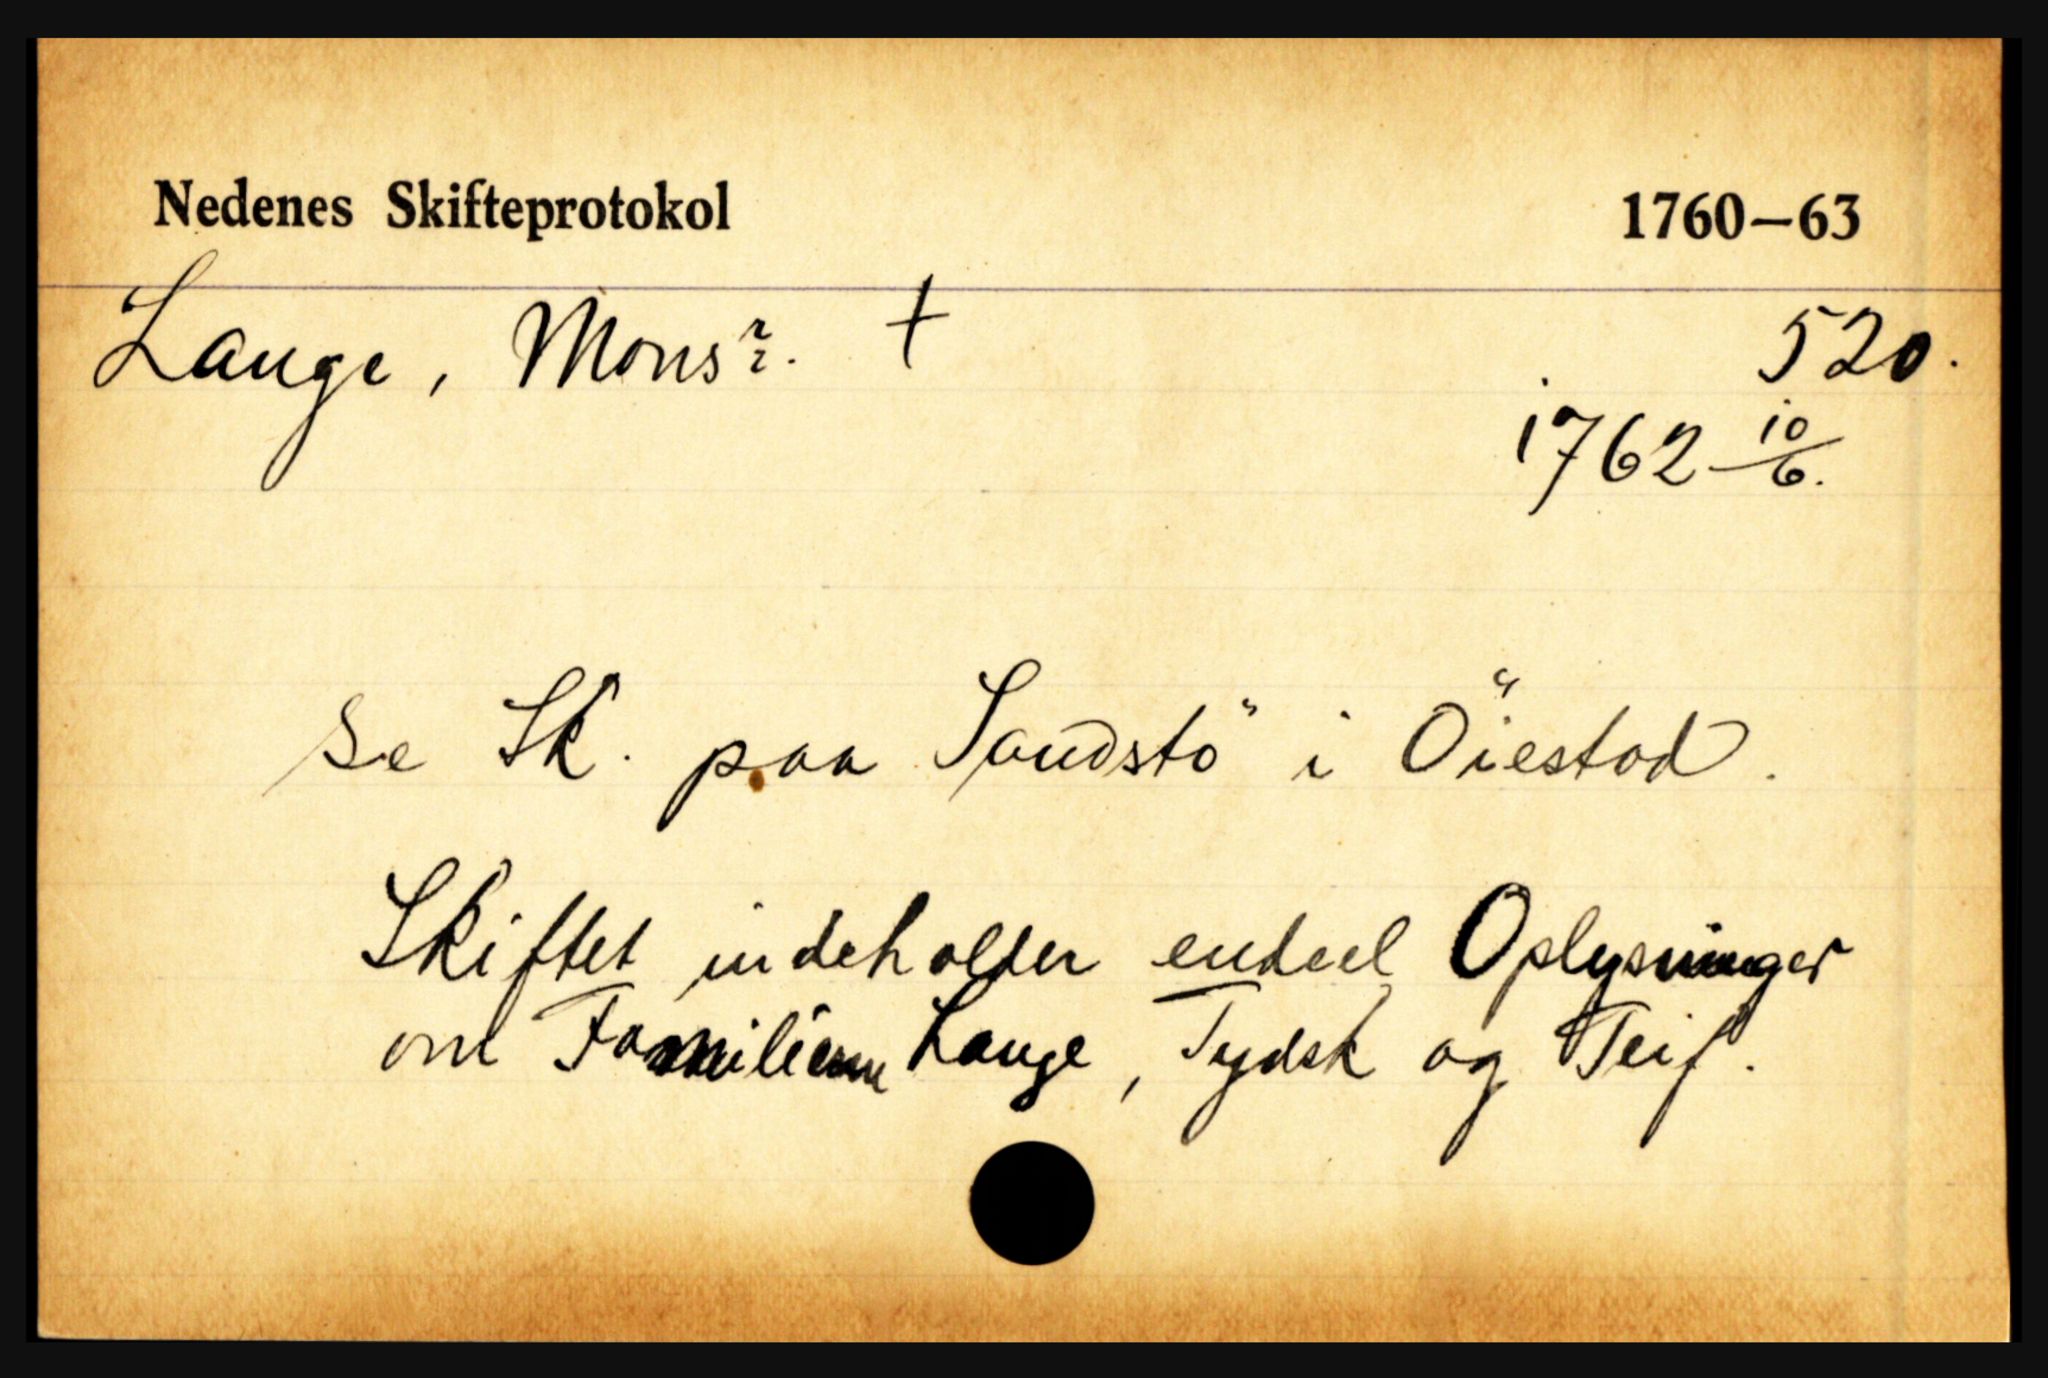 Nedenes Skifteprotokol 1760—63
Lange, Monsr. † 520.
1762 10/6.
Se Sk. paa Sandstö i Öiestad.
Skiftet indeholder endeel Oplysninger
om Familien Lange, Tydsk og Teif.